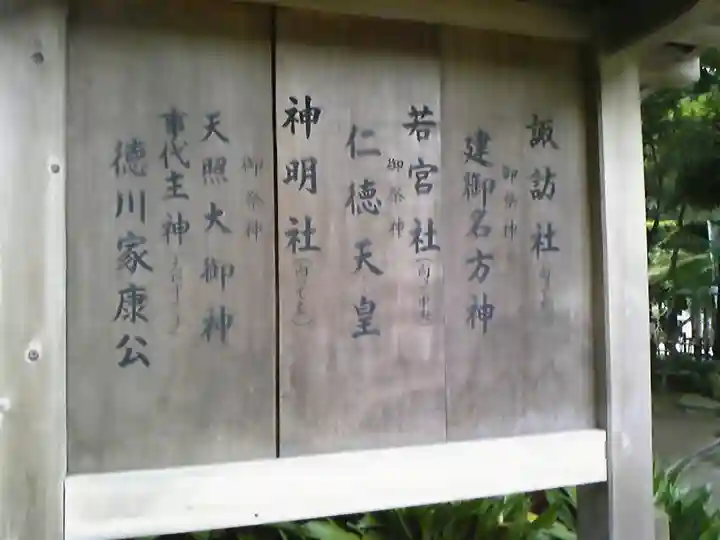 諏訪社
御祭神
建御名方神
若宮社
御祭神
仁徳天皇
神明社
御祭神
天照大御神
事代主神
徳川家康公